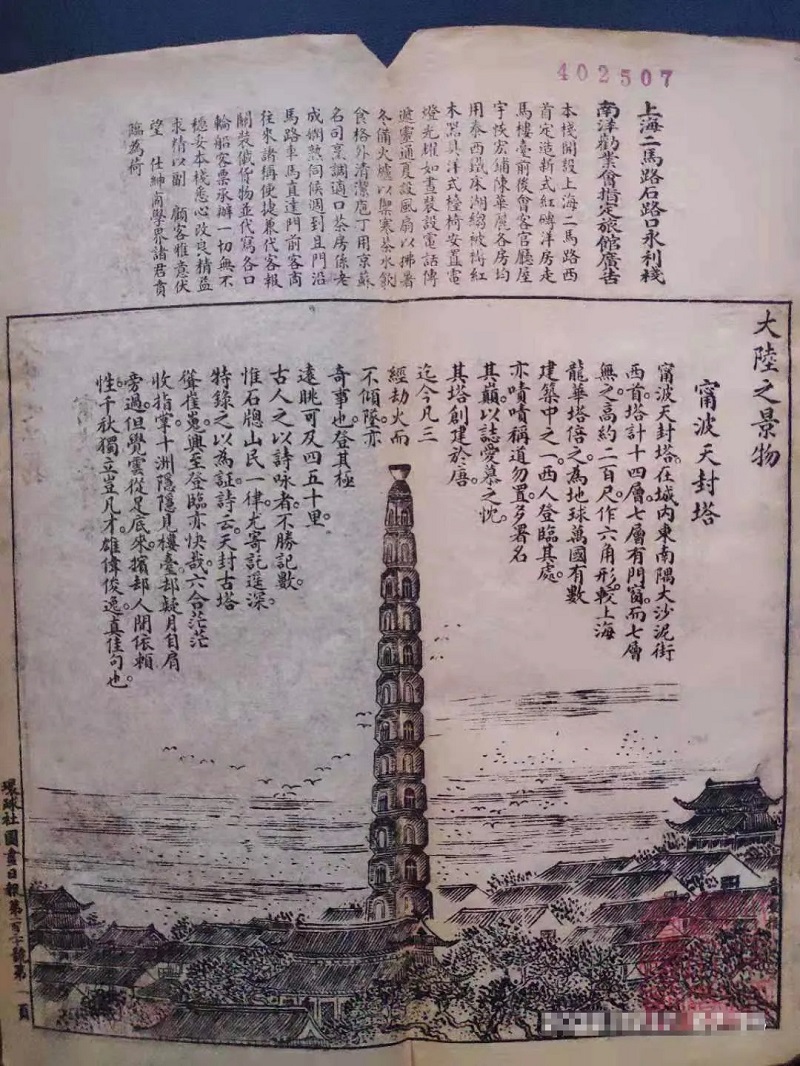 402507
上海二馬路石路口永利棧
南洋勸業會指定旅館廣告
本棧開設上海二馬路西
首定造新式紅磚洋房走
馬樓臺前後會客官廳屋
宇恢宏鋪陳華麗各房均
用泰西鐵床湖縐被褥紅
木器具洋式檯椅安置電
燈光耀如晝裝設電話傳
遞靈通夏設風扇以拂暑
冬備火爐以禦寒茶水飲
食格外清潔庖丁用京蘇
名司烹調適口茶房係老
成嫻熟伺候週到且門沿
馬路車馬直達門前客商
往來諸稱便捷兼代客報
關裝儎貨物並代寫各口
輪船客票承辦一切無不
穩妥本棧悉心改良精益
求精以副 顧客雅意伏
望 仕紳商學界諸君賁
臨為荷
大陸之景物
甯波天封塔
甯波天封塔。在城內東南隅大沙泥街
西首。塔計十四層。七層有門窗。而七層
無之。高約二百尺。作六角形。較上海
龍華塔倍之。為地球萬國有數
建築中之一。西人登臨其處。
亦嘖嘖稱道勿置。多署名
其巔。以誌愛慕之忱。
其塔創建於唐。
迄今凡三
經劫火。而
不傾墜。亦
奇事也。登其極
遠眺可及四五十里。
古人之以詩咏者。不勝記數。
惟石牕山民一律。尤寄託遥深。
特錄之以為証。詩云。天封古塔
聳崔嵬。興至登臨亦快哉。六合茫茫
收指掌。十洲隱隱見樓臺。却疑月自肩
旁過。但覺雲從足底來。擯却人間依賴
性。千秋獨立豈凡才。雄偉俊逸。真佳句也。
環球社圖畫日報第二百十號第 頁